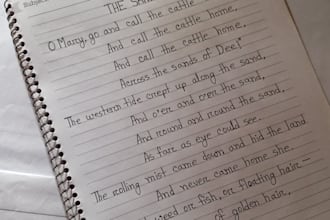 Subject
THE
O Mary, go and call the cattle home,
And call the cattle home,
And call the cattle home,
Across the sands of Dee!"
The western tide crept up along the sand,
And o'er and o'er the sand,
And round and round the sand,
As far as eye could see.
The rolling mist came down and hid the land
And never came home she
weed or fish, or floating hair—
of golden hair,